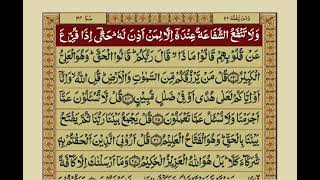 وَمَنْ يَّقْنُتْ ٢٢ سَبَا ٣٤
وَلَا تَنْفَعُ الشَّفَاعَةُ عِنْدَهٗۤ اِلَّا لِمَنْ اَذِنَ لَهٗ ؕ حَتّٰۤى اِذَا فُزِّعَ
عَنْ قُلُوْبِهِمْ قَالُوْا مَا ذَا ۙ قَالَ رَبُّكُمْ ؕ قَالُوا الْحَقَّ ۚ وَهُوَ الْعَلِىُّ
الْكَبِيْرُ ﴿۲۳﴾ قُلْ مَنْ يَّرْزُقُكُمْ مِّنَ السَّمٰوٰتِ وَالْاَرْضِ ؕ قُلِ اللّٰهُ ۙ
وَاِنَّاۤ اَوْ اِيَّاكُمْ لَعَلٰى هُدًى اَوْ فِىْ ضَلٰلٍ مُّبِيْنٍ ﴿۲۴﴾ قُلْ لَّا تُسْـَٔلُوْنَ عَمَّاۤ
اَجْرَمْنَا وَلَا نُسْـَٔلُ عَمَّا تَعْمَلُوْنَ ﴿۲۵﴾ قُلْ يَجْمَعُ بَيْنَنَا رَبُّنَا ثُمَّ يَفْتَحُ
بَيْنَنَا بِالْحَقِّ ؕ وَهُوَ الْفَتَّاحُ الْعَلِيْمُ ﴿۲۶﴾ قُلْ اَرُوْنِىَ الَّذِيْنَ اَلْحَقْتُمْ بِهٖ
شُرَكَآءَ كَلَّا ؕ بَلْ هُوَ اللّٰهُ الْعَزِيْزُ الْحَكِيْمُ ﴿۲۷﴾ وَمَاۤ اَرْسَلْنٰكَ اِلَّا كَآفَّةً